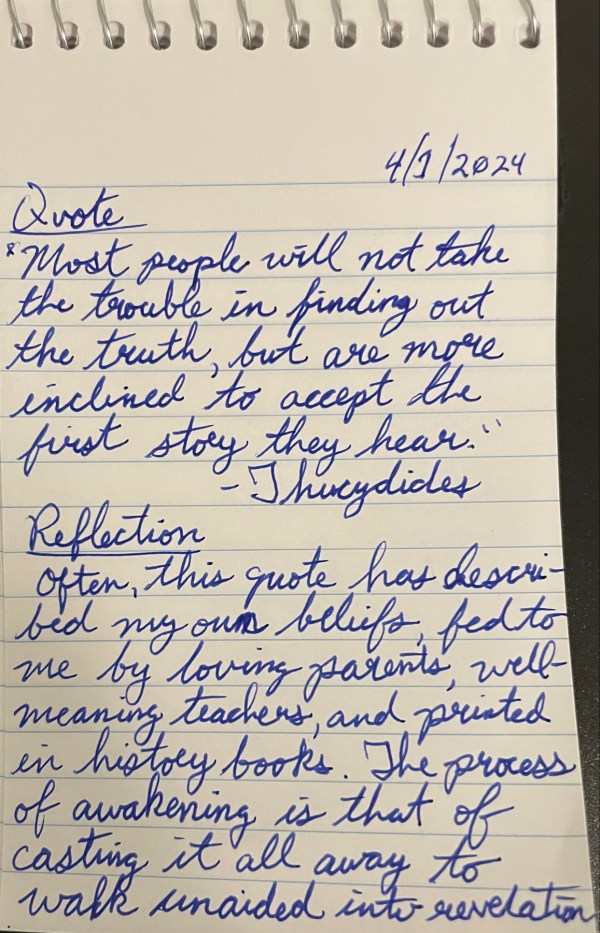 4/1/2024
Quote
"Most people will not take
the trouble in finding out
the truth, but are more
inclined to accept the
first story they hear."
- Thucydides
Reflection
Often, this quote has descri-
bed my own beliefs, fed to
me by loving parents, well-
meaning teachers, and printed
in history books. The process
of awakening is that of
casting it all away to
walk unaided into revelation